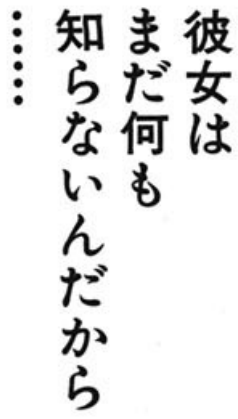 彼女は
まだ何も
知らないんだから
……